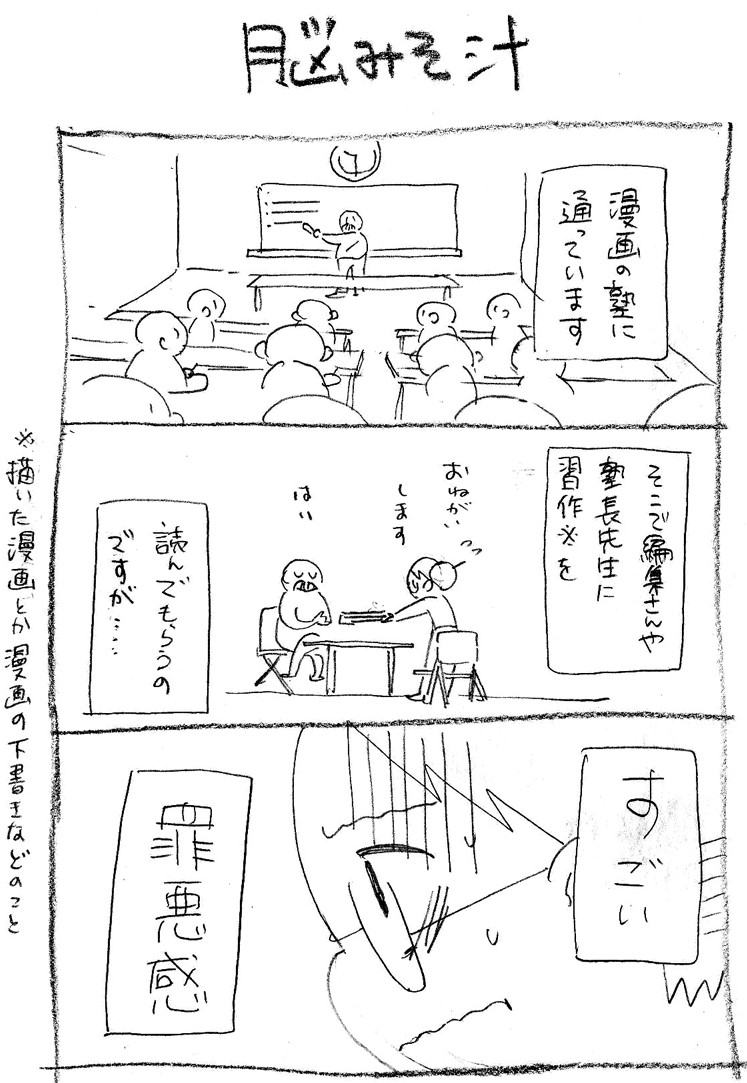 脳みそ汁
漫画の塾に
通っています
そこで編集さんや
塾長先生に
習作※を
おねがい
します
はい
読んでもらうの
ですが……
すごい
罪悪感
※描いた漫画とか漫画の下書きなどのこと